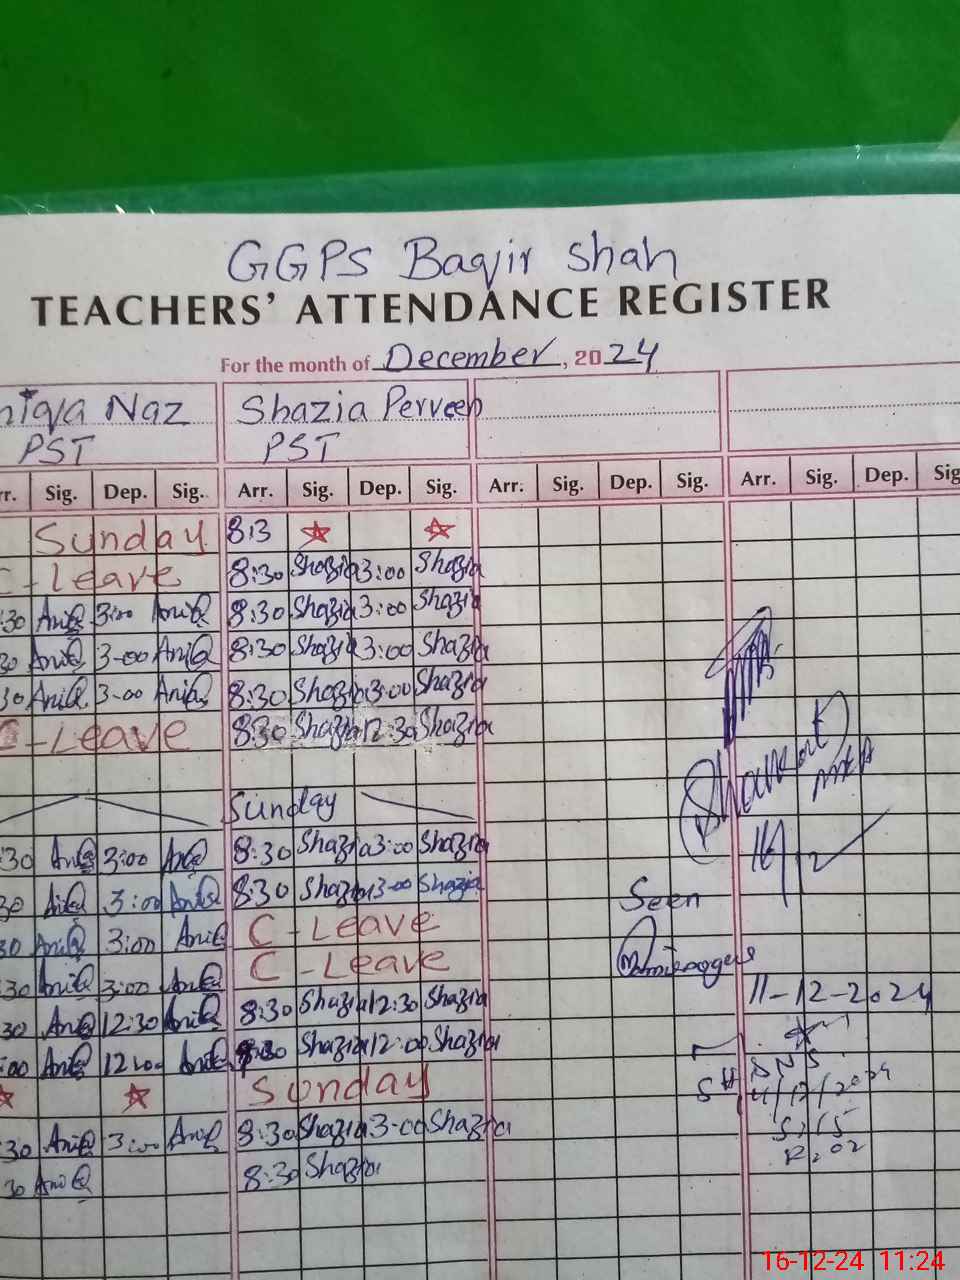 GGPS Baqir Shah
TEACHERS' ATTENDANCE REGISTER
For the month of December, 2024
niqa Naz Shazia Perveen
PST PST
rr. Sig. Dep. Sig. Arr. Sig. Dep. Sig. Arr. Sig. Dep. Sig. Arr. Sig. Dep. Sig
Sunday 8:3
C-Leave 8:30 Shazia 3:00 Shazia
:30 AniQ 3:00 AniQ 8:30 Shazia 3:00 Shazia
30 AniQ 3-00 AniQ 8:30 Shazia 3:00 Shazia
30 AniQ 3-00 AniQ 8:30 Shazia 3:00 Shazia
C-Leave 8:30 Shazia 12:30 Shazia
Sunday
:30 AniQ 3:00 AniQ 8:30 Shazia 3:00 Shazia
30 AniQ 3:00 AniQ 8:30 Shazia 3-00 Shazia
30 AniQ 3:00 AniQ C-Leave
:30 AniQ 3:00 AniQ C-Leave
30 AniQ 12:30 AniQ 8:30 Shazia 12:30 Shazia
:00 AniQ 12:00 AniQ Shazia 12:00 Shazia
Sunday
:30 AniQ 3:00 AniQ 8:30 Shazia 3-00 Shazia
30 AniQ 8:30 Shazia
16/12
Seen
11-12-2024
16-12-24 11:24